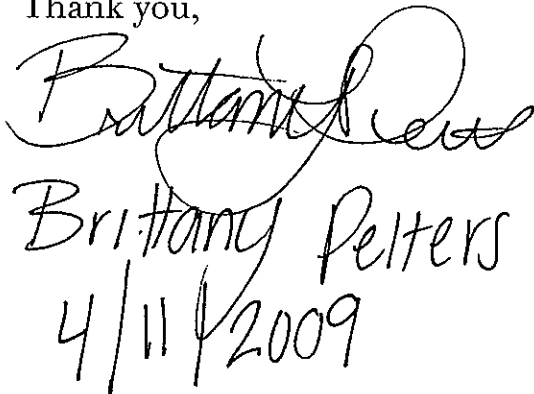 Thank you,
Brittany
Brittany Pelters
4/11/2009